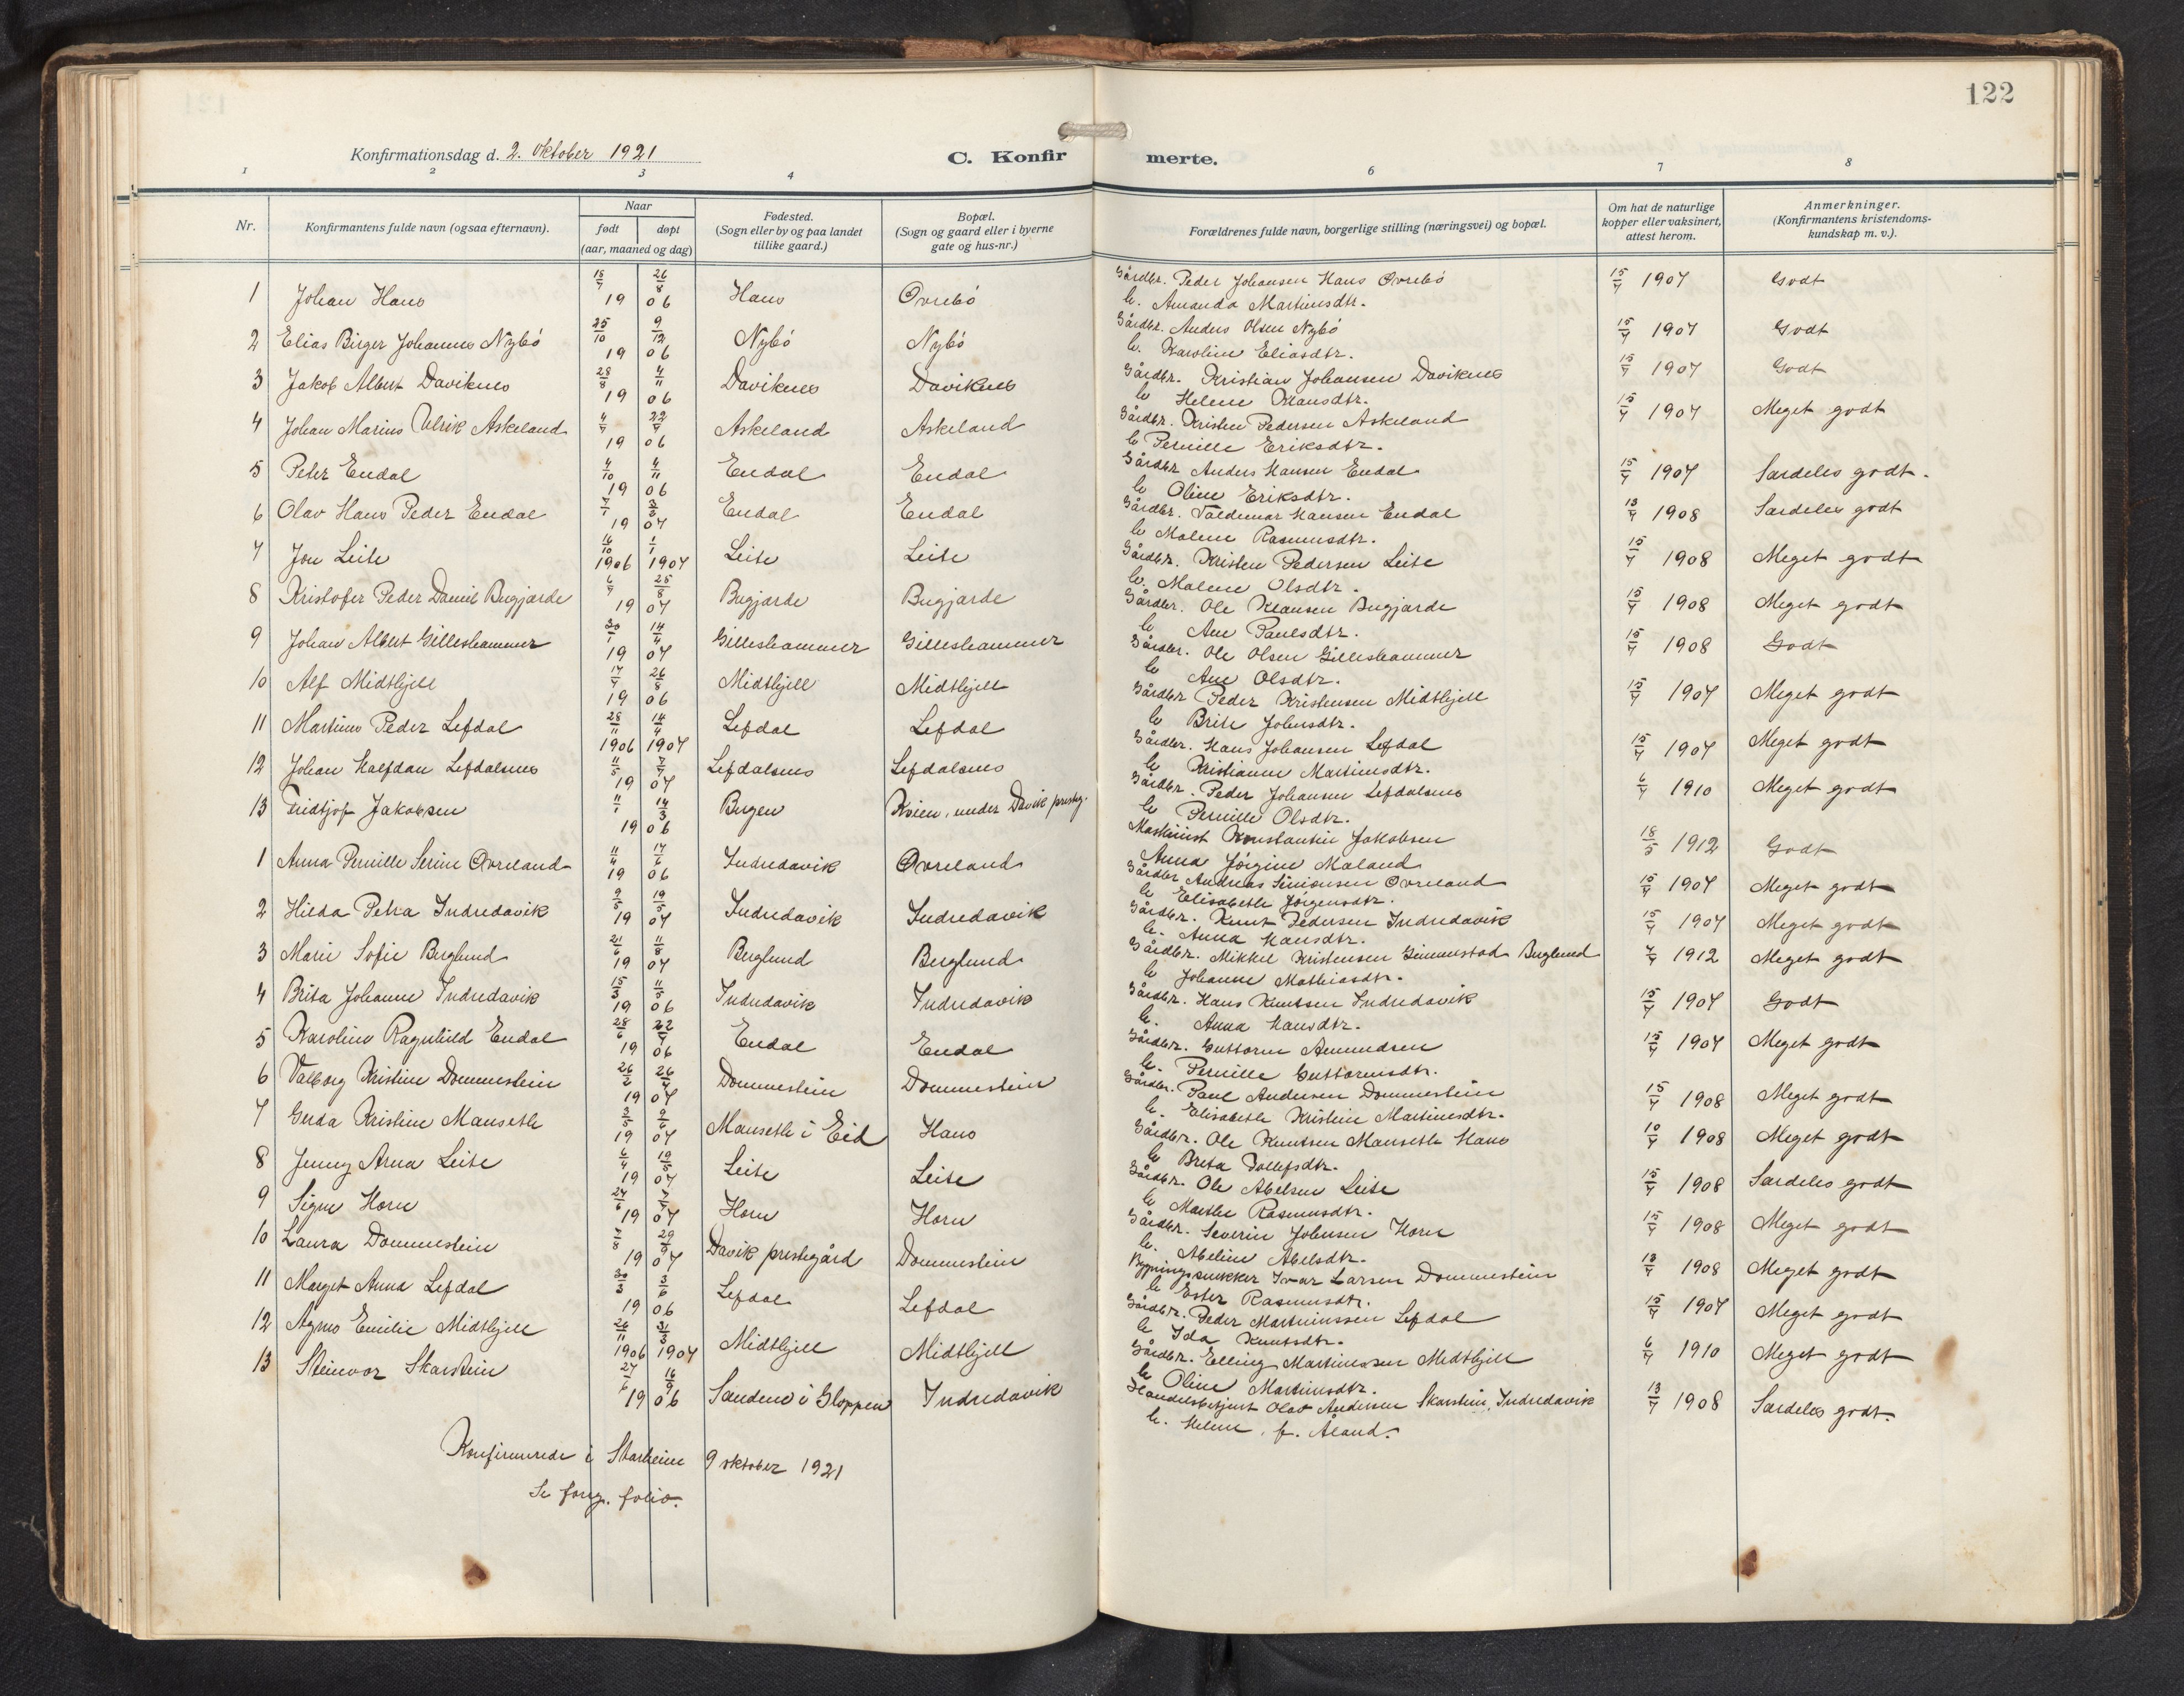 122
Konfirmationsdag d. 2. oktober 1921
C. Konfirmerte.
1 2 3 4 6 7 8
Nr.
Konfirmantens fulde navn (ogsaa efternavn).
Naar
født døpt
(aar, maaned og dag)
Fødested.
(Sogn eller by og paa landet
tillike gaard.)
Bopæl.
(Sogn og gaard eller i byerne
gate og hus-nr.)
Forældrenes fulde navn, borgerlige stilling (næringsvei) og bopæl.
Om hat de naturlige
kopper eller vaksinert,
attest herom.
Anmerkninger.
(Konfirmantens kristendoms-
kundskap m. v.).
1 Johan Haus 15/7 26/8 1906 Haus Øvrebö Gårdbr. Peder Johansen Haus Øvrebö 15/7 1907 Godt
h. Amanda Martinusdtr.
2 Elias Birger Johannes Nybö 25/10 9/12 1906 Nybö Nybö Gårdbr. Anders Olsen Nybö 15/7 1907 Godt
h. Karoline Eliasdtr.
3 Jakob Albert Daviknes 28/8 4/11 1906 Daviknes Daviknes Gårdbr. Kristian Johansen Daviknes 15/7 1907 Godt
h. Helene Klausdtr.
4 Johan Marius Ulrik Askeland 4/7 22/7 1906 Askeland Askeland Gårdbr. Kristen Pedersen Askeland 15/7 1907 Meget godt
h. Pernille Eriksdtr.
5 Peter Endal 4/10 4/11 1906 Endal Endal Gårdbr. Anders Hansen Endal 15/7 1907 Særdeles godt.
h. Oline Eriksdtr.
6 Olav Hans Peder Endal 7/1 3/3 1907 Endal Endal Gårdbr. Valdemar Hansen Endal 13/7 1908 Særdeles godt
h. Malene Rasmusdtr.
7 Jon Leite 16/10 1906 1/1 1907 Leite Leite Gårdbr. Kristen Pedersen Leite 15/7 1908 Meget godt
h. Malene Olsdtr.
8 Kristofer Peder Daniel Bugjærde 6/7 25/8 1907 Bugjærde Bugjærde Gårdbr. Ole Klausen Bugjærde 15/7 1908 Meget godt
h. Ane Paulsdtr.
9 Johan Albert Gilleshammer 30/1 14/4 1907 Gilleshammer Gilleshammer Gårdbr. Ole Olsen Gilleshammer 15/7 1908 Godt
h. Ane Olsdtr.
10 Alf Midthjell 17/7 26/8 1906 Midthjell Midthjell Gårdbr. Peder Kristensen Midthjell 15/7 1907 Meget godt
h. Brite Johnsdtr.
11 Martinus Peder Lefdal 28/11 1906 14/4 1907 Lefdal Lefdal Gårdbr. Hans Johansen Lefdal 15/7 1907 Meget godt
h. Kristianne Martinusdtr.
12 Johan Halfdan Lefdalsnes 11/5 7/7 1907 Lefdalsnes Lefdalsnes Gårdbr. Peder Johansen Lefdalsnes 6/7 1910 Meget godt
h. Pernille Olsdtr.
13 Fridtjof Jakobsen 11/1 14/3 1906 Bergen Kvien, under Davik presteg. Maskinist Konstantin Jakobsen 18/5 1912 Godt
Anna Jörgine Maland
1 Anna Pernille Serine Øvreland 11/4 17/6 1906 Indredavik Øvreland Gårdbr Andreas Simonsen Øvreland 15/7 1907 Meget godt
h. Elisabeth Jörgensdtr.
2 Hilda Petra Indredavik 9/5 19/5 1907 Indredavik Indredavik Gårdbr. Knut Pedersen Indredavik 15/7 1907 Meget godt
h. Anna Hansdtr.
3 Marie Sofie Berglund 21/6 11/8 1907 Berglund Berglund Gårdbr. Mikkel Kristensen Gimmestad Berglund 7/7 1912 Meget godt
h. Johanne Mathiasdtr.
4 Brita Johanne Indredavik 15/3 11/5 1906 Indredavik Indredavik Gårdbr. Hans Knutsen Indredavik 15/7 1907 Godt
h. Anna Hansdtr.
5 Karoline Ragnhild Endal 28/6 22/7 1906 Endal Endal Gårdbr. Guttorm Amundsen 15/7 1907 Meget godt
h. Pernille Guttormsdtr.
6 Valborg Kristine Dommestein 26/2 26/4 1907 Dommestein Dommestein Gårdbr. Paul Andersen Dommestein 15/7 1908 Meget godt
h. Elisabeth Kristine Martinusdtr.
7 Gusta Kristine Mauseth 3/5 9/6 1907 Mauseth i Eid Haus Gårdbr. Ole Knutsen Mauseth Haus 10/7 1908 Meget godt
h. Brita Tollefsdtr.
8 Jenny Arna Leite 6/4 19/5 1907 Leite Leite Gårdbr. Ole Abelsen Leite 15/7 1908 Særdeles godt
h. Marthe Rasmusdtr.
9 Signe Horn 24/6 7/7 1907 Horn Horn Gårdbr. Severin Johnsen Horn 15/7 1908 Meget godt
h. Abeline Abelsdtr.
10 Laura Dommestein 7/8 29/9 1907 Davik prestegård Dommestein Bygningssnekker Ivar Larsen Dommestein 13/7 1908 Meget godt
h. Ester Rasmusdtr.
11 Marget Anna Lefdal 30/3 3/6 1906 Lefdal Lefdal Gårdbr. Peder Martinussen Lefdal 15/7 1907 Meget godt
h. Ida Knutsdtr.
12 Agnes Emilie Midthjell 26/11 1906 31/3 1907 Midthjell Midthjell Gårdbr. Elling Martinussen Midthjell 6/7 1910 Meget godt
h. Oline Martinusdtr.
13 Steinvor Skarstein 27/6 16/9 1906 Sandene i Gloppen Indredavik Handelsbetjent Olav Andersen Skarstein, Indredavik 13/7 1908 Særdeles godt.
h. Helene, f. Åland.
Konfirmerede i Starheim 9 oktober 1921
Se forrg. folio.